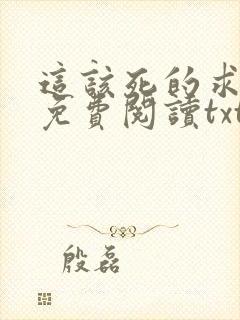 這該死的求
免費閱讀txt
殷磊